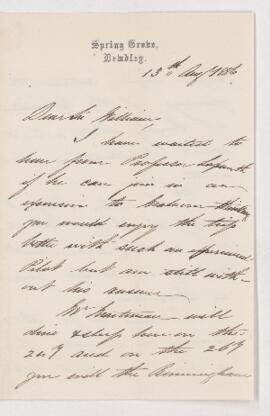 Spring Grove,
Bewdley.
13th Augt 1886
Dear Sir William,
I have waited to
hear from Professor Lapworth
if he can join in an
excursion to Malvern thinking
you would enjoy the trip
better with such an experienced
Pilot but am still with-
out his answer.
Mr will
dine & sleep here on the
24th and on the 26th
you will the Birmingham